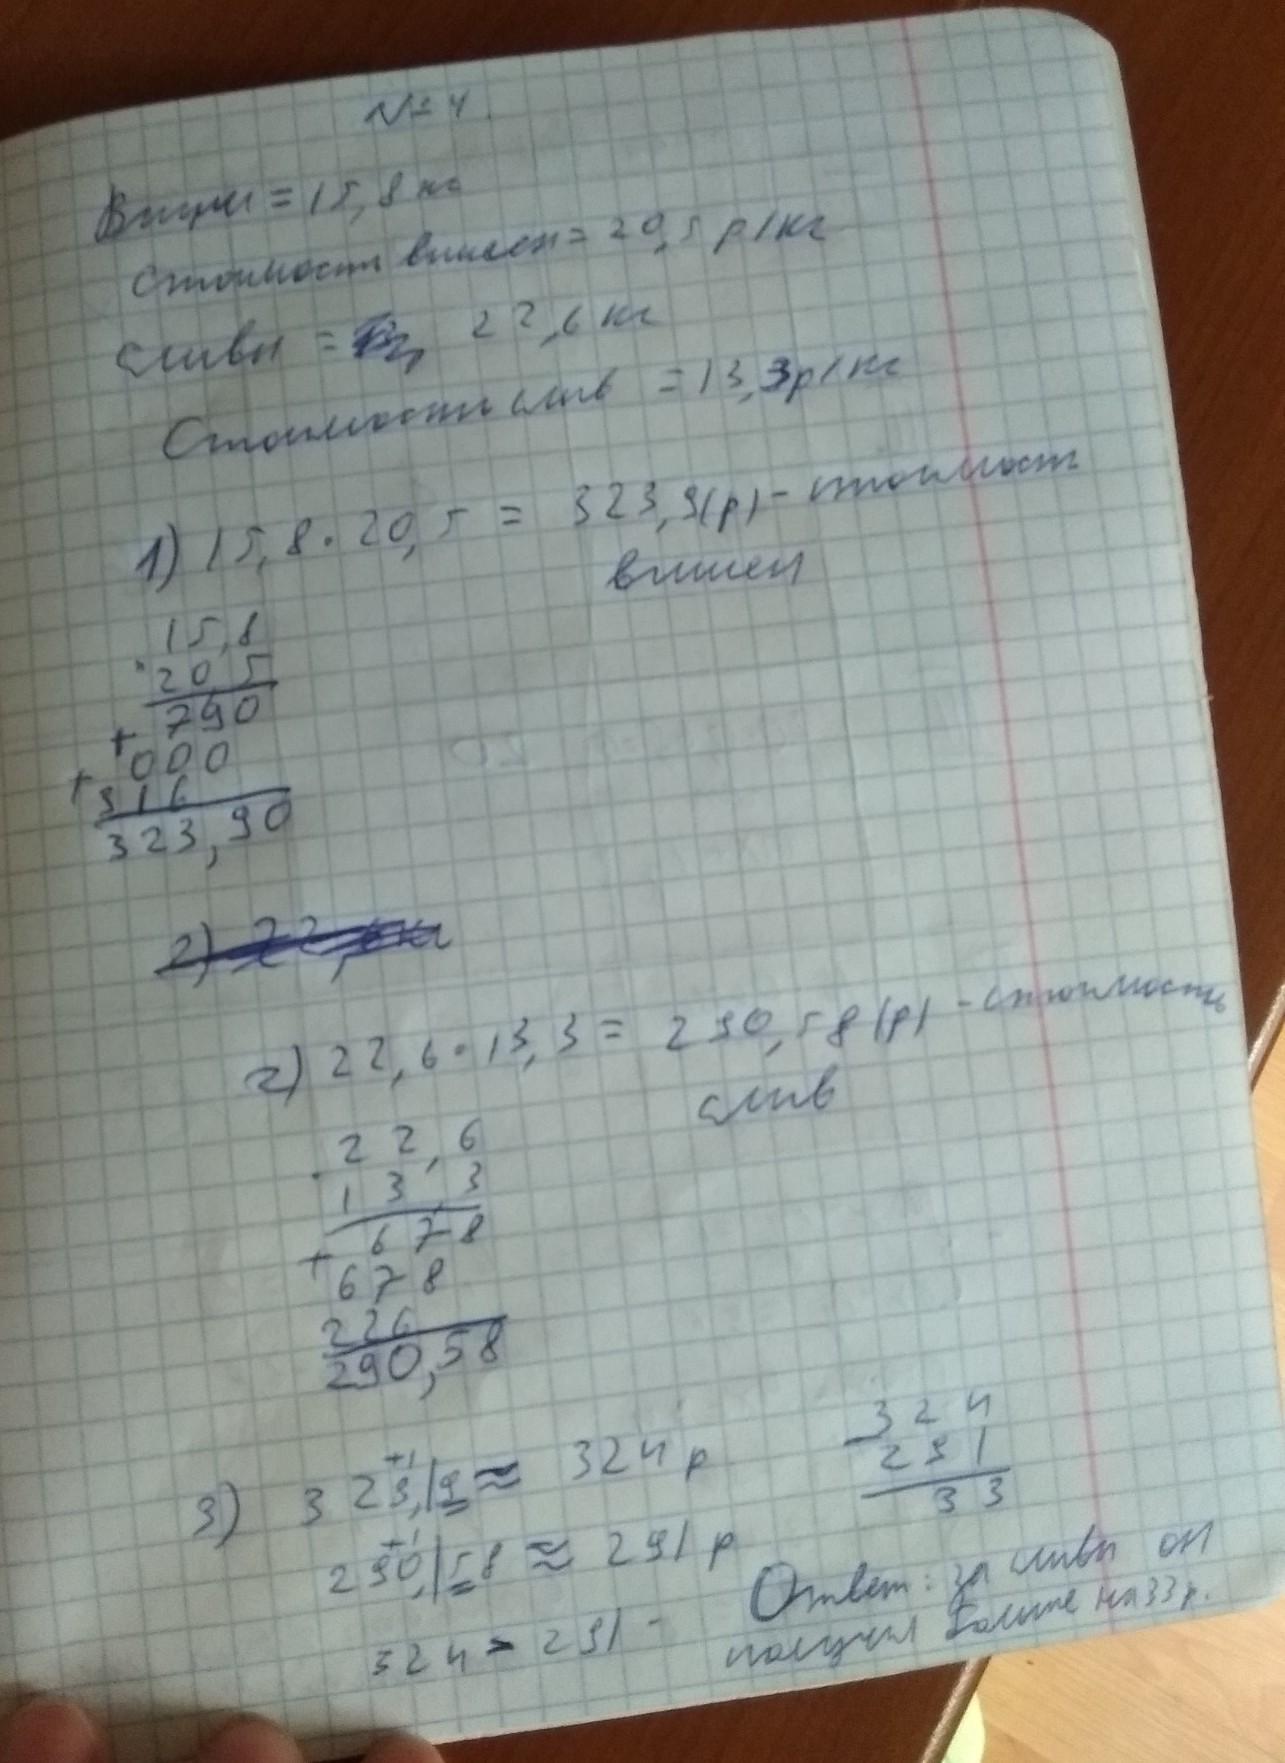 № 4.
Вишни = 15,8 кг
Стоимость вишен = 20,5 р/кг
Сливы = 22,6 кг
Стоимость слив = 13,3р/кг
1) 15,8 · 20,5 = 323,9(р) - стоимость
вишен
15,8
· 20 5
790
+ 000
+ 316
323,90
2) 22,6 · 13,3 = 290,58 (р) - стоимость
слив
· 22,6
13,3
+ 678
678
226
290,58
3) 323,|9 ≈ 324 р
+1
290,|58 ≈ 291 р
+1
324 > 291 -
- 324
291
33
Ответ: за сливы он
получил больше на 33 р.